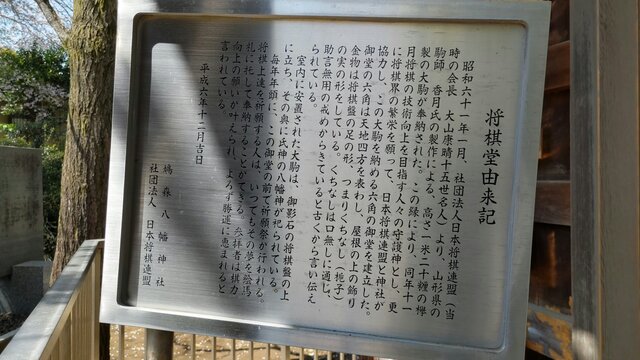 将棋堂由来記
昭和六十一年一月、社団法人日本将棋連盟（当
時の会長 大山康晴十五世名人）より、山形県の
駒師 香月氏の製作による、高さ一米二十糎の欅
製の大駒が奉納された。この縁により、同年十一
月将棋の技術向上を目指す人々の守護神とし、更
に将棋界の繁栄を願って、日本将棋連盟と神社が
協力し、この大駒を納める六角の御堂を建立した。
御堂の六角は天地四方を表わし、屋根の上の飾り
金物は将棋盤の足の形、つまりくちなし（梔子）
の実の形をしている。くちなしは口無しに通じ、
助言無用の戒めからきていると古くから言い伝え
られている。
室内に安置された大駒は、御影石の将棋盤の上
に立ち、その奥に氏神の八幡神が祀られている。
毎年年頭に、この御堂の前で祈願祭が行われる。
将棋上達を祈願する人は、いつでもその夢を絵馬
札に托して奉納することができる。参拝者は棋力
向上の願いが叶えられ、よろず勝運に恵まれると
言われている。
平成六年十二月吉日
鳩森八幡神社
社団法人 日本将棋連盟